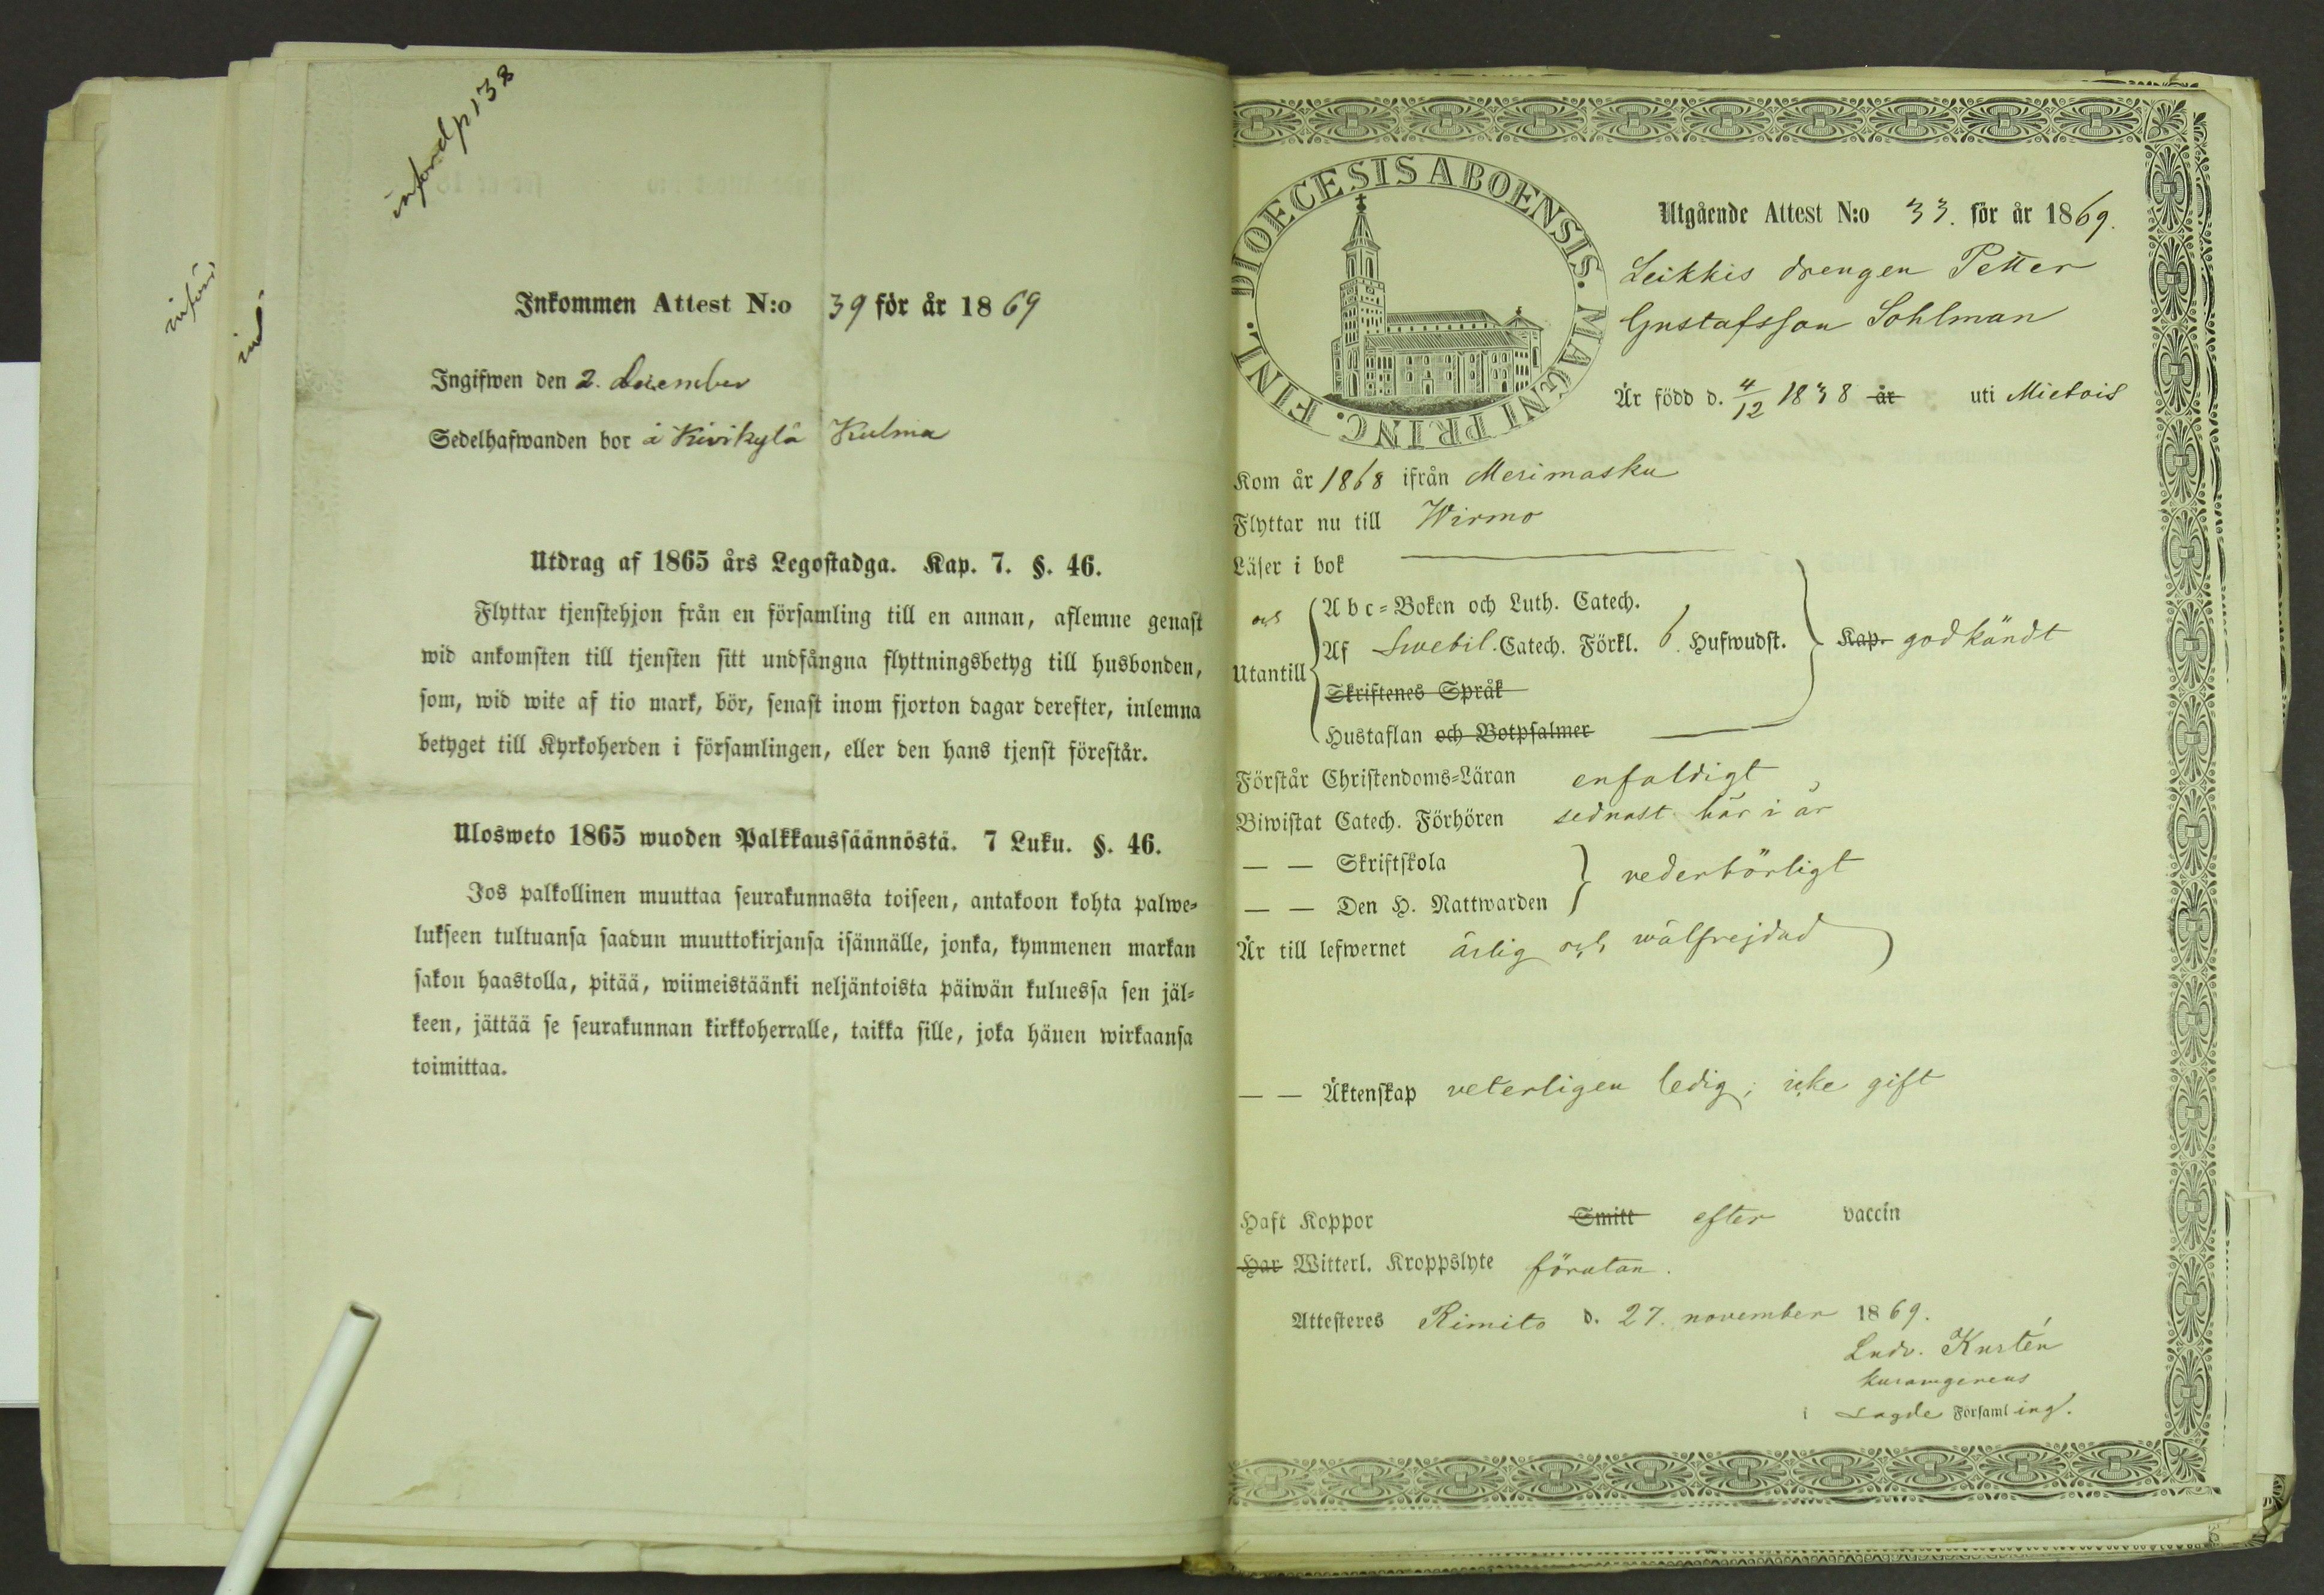 införd p 138
införd
Inkommen Attest N:o 39 för år 1869
Ingifwen den 2. december
Sedelhafwanden bor å Kivikylä Kulma
Utdrag af 1865 års Legostadga. Kap. 7. §. 46.
Flyttar tjenstehjon från en församling till en annan, aflemne genast
wid ankomsten till tjensten sitt undfångna flyttningsbetyg till husbonden,
som, wid wite af tio mark, bör, senast inom fjorton dagar derefter, inlemna
betyget till Kyrkoherden i församlingen, eller den hans tjenst förestår.
Ulosweto 1865 wuoden Palkkaussäännöstä. 7 Luku. §. 46.
Jos palkollinen muuttaa seurakunnasta toiseen, antakoon kohta palwe-
lukseen tultuansa saadun muuttokirjansa isännälle, jonka, kymmenen markan
sakon haastolla, pitää, wiimeistäänki neljäntoista päiwän kuluessa sen jäl-
keen, jättää se seurakunnan kirkkoherralle, taikka sille, joka hänen wirkaansa
toimittaa.
DIOECESIS ABOENSIS. MAGNI PRINC. FINL.
Utgående Attest N:o 33. för år 1869.
Leikkis drengen Petter
Gustafsson Sohlman
Är född d. 4/12 1838 år uti Mietois
Kom år 1868 ifrån Merimasku
Flyttar nu till Wirmo
Läser i bok
och
Utantill
Abc-Boken och Luth. Catech.
Af Swebil. Catech. Förkl. 6 Hufwudst. Kap. godkändt
Skriftenes Språk
Hustaflan och Botpsalmer
Förstår Christendoms-Läran enfaldigt
Biwistat Catech. Förhören sednast här i år
— — Skriftskola
vederbörligt
— — Den H. Nattwarden
Är till lefwernet ärlig och wälfrejdad
— — Äktenskap veterligen ledig; icke gift
Haft Koppor Smitt efter vaccin
Har Witterl. Kroppslyte förutan.
Attesteres Rimito d. 27. november 1869.
Ludv. Kustén
i Sagde Församling.